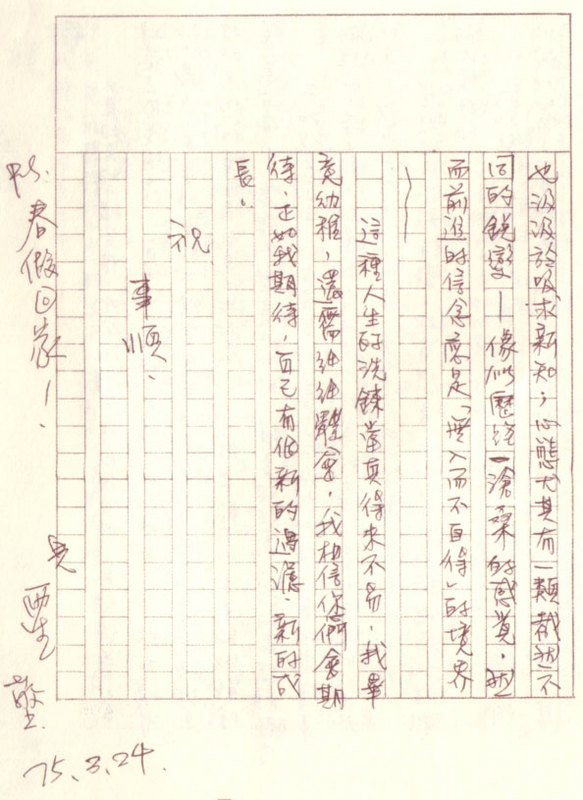 也汲汲於吸求新知；心態尤其有一類截然不
同的銳變—像似歷經一滄桑的感覺，然
而前進的信念應是「無入而不自得」的境界
——
這種人生的洗鍊當真得來不易，我畢
竟幼稚，還需細細體會，我相信你們會期
待，正如我期待，自己有個新的過濾、新的成
長。
祝
事
順、
P.S. 春假回家！
兄
敬上
75.3.24.